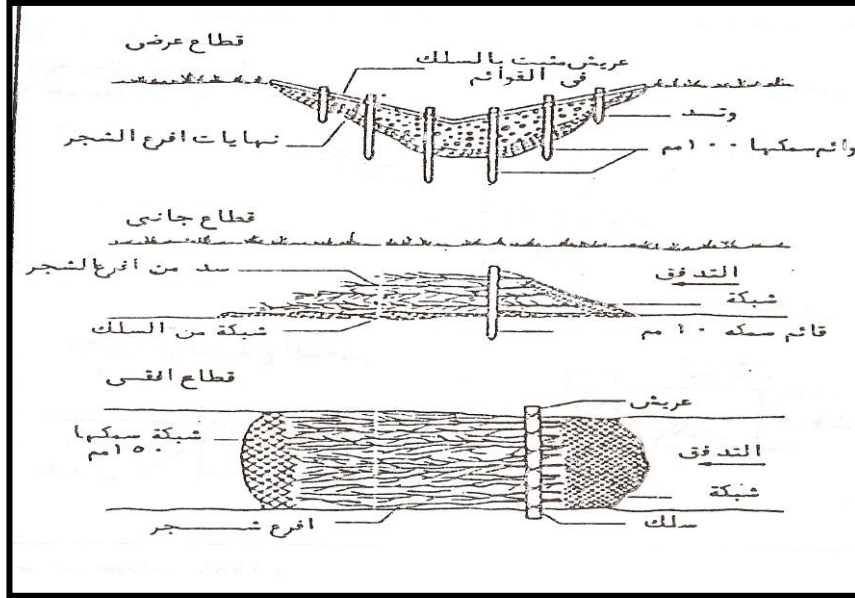 قطاع عرضى
عريش مثبت بالسلك
فى القوائم
وتد
نهايات افرع الشجر
وائم سمكها ١٠٠ مم
قطاع جانبى
سد من افرع الشجر
التدفق
شبكة
شبكة من السلك
قائم سمكه ١٠ مم
قطاع افقى
عريش
شبكة سمكها
١٥٠ مم
التدفق
شبكة
افرع شجر
سلك